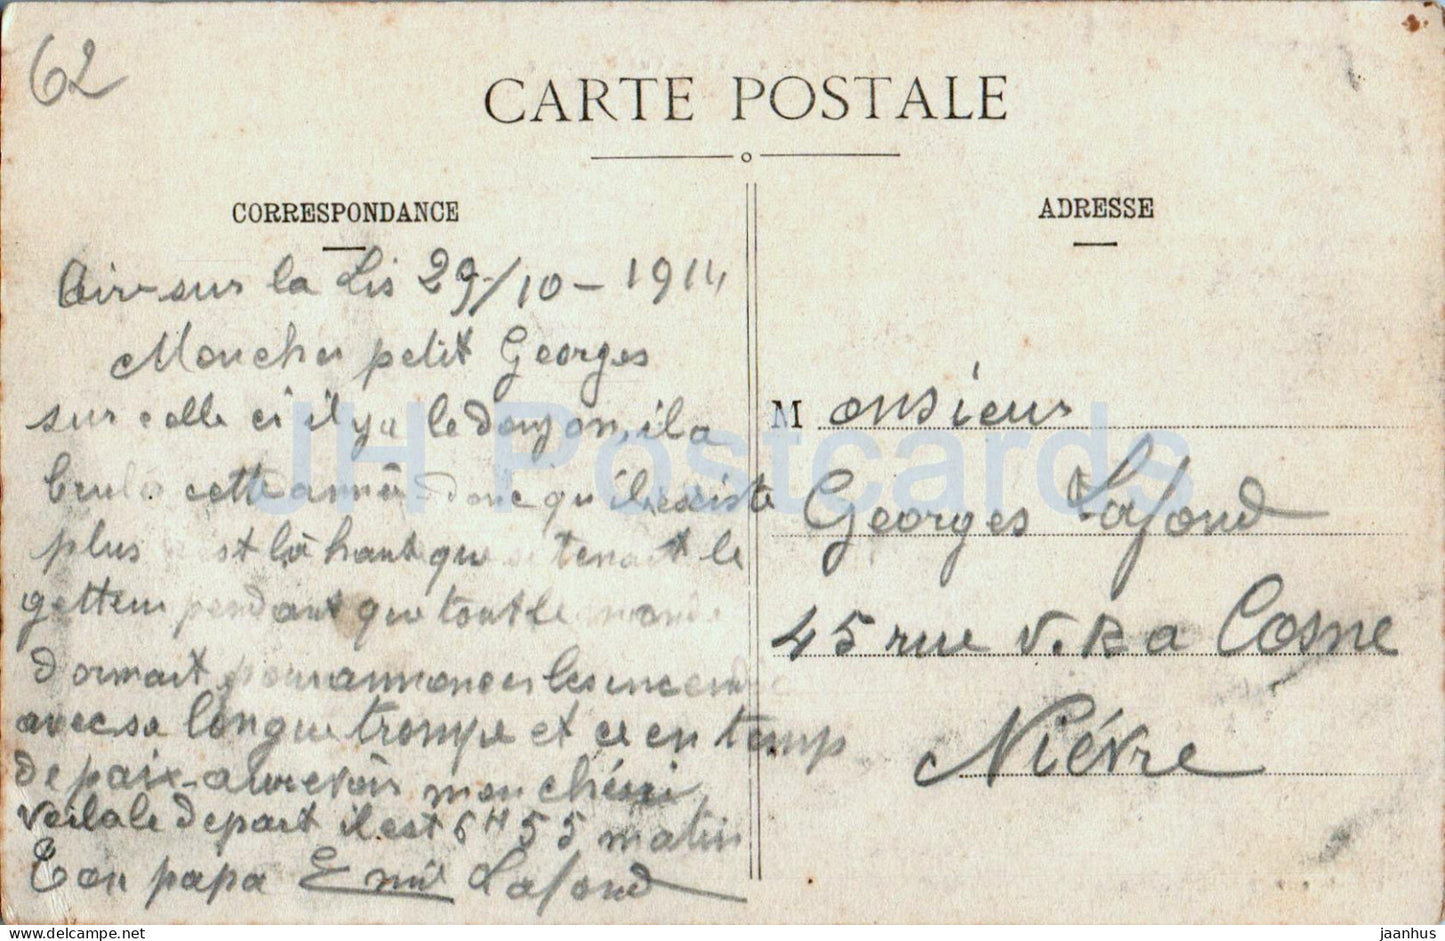 62
CARTE POSTALE
CORRESPONDANCE
Aire sur la Lis 29/10 - 1914
Moncher petit Georges
sur celle ci il y a le donjon, il a
brulé cette année donc qu'il existe
plus c'est là haut que se tenait le
getteur pendant que tout le monde
dormait pour annoncer les incendie
avec sa longue trompe et ce en temp
de paix - aurevoir mon chéri
voila le depart il est 6H55 matin
Ton papa Emile Lafond
ADRESSE
Monsieur
Georges Lafond
45 rue V. R a Cosne
Nièvre
JH Postcards
delcampe.net
jaanhus